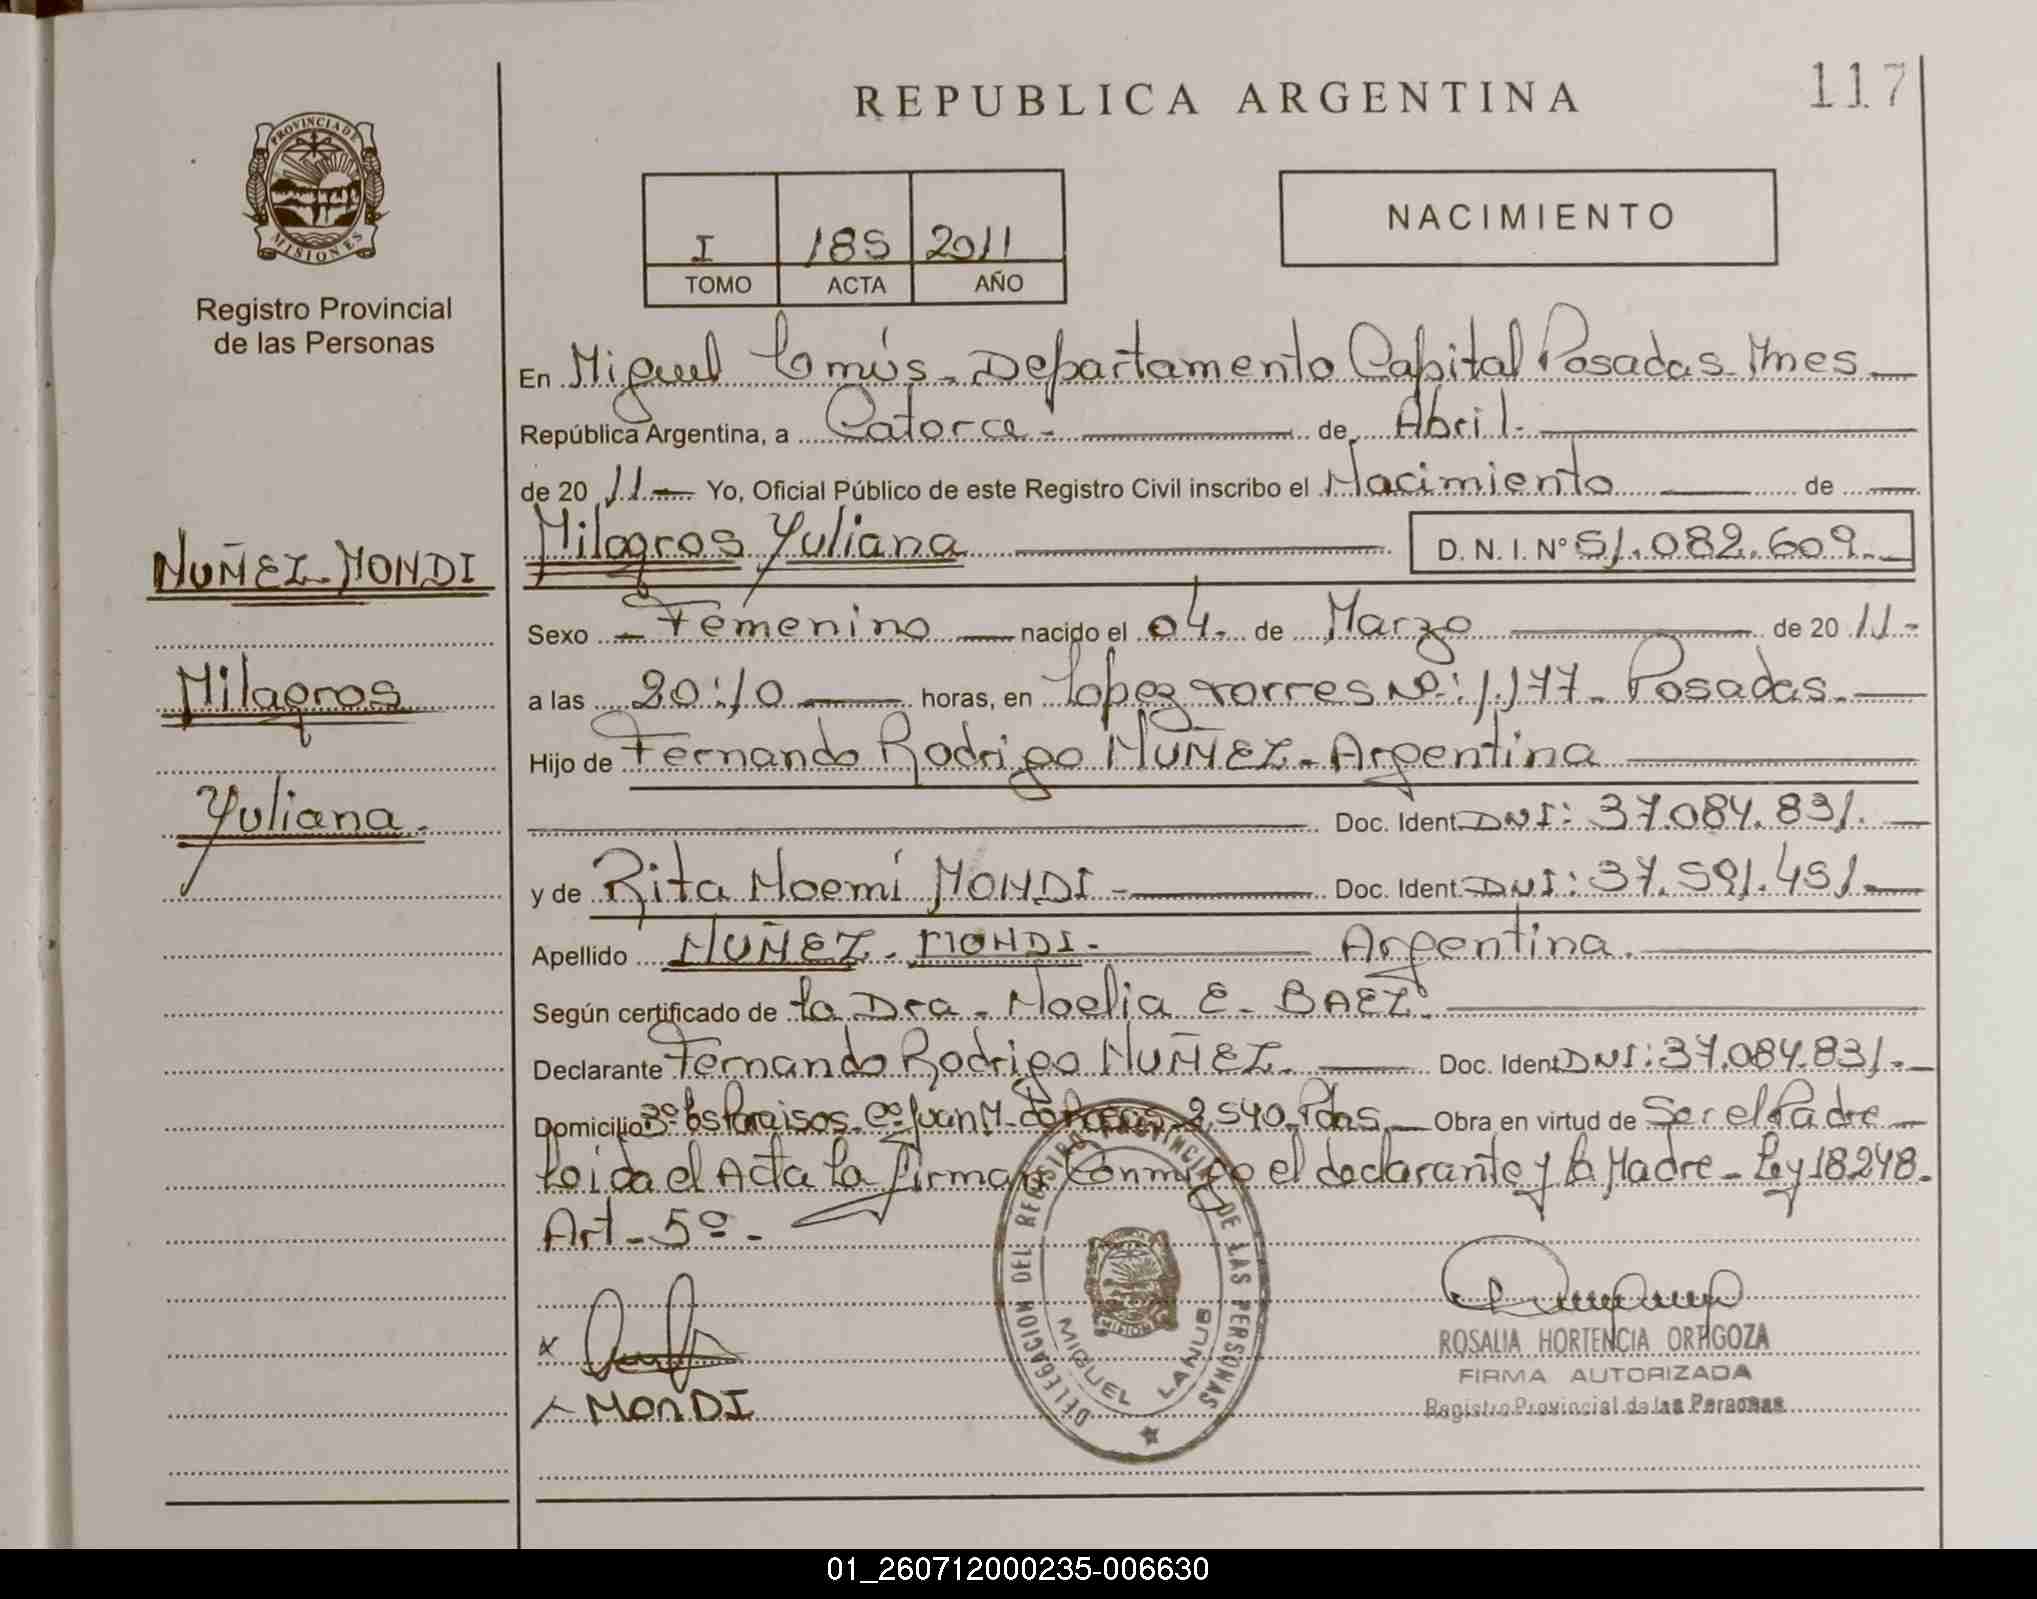 117
REPUBLICA ARGENTINA
PROVINCIA DE
MISIONES
Registro Provincial
de las Personas
I 185 2011
TOMO ACTA AÑO
NACIMIENTO
En Miguel Lanús - Departamento Capital Posadas - Mnes
República Argentina, a Catorce - de Abril -
de 2011 - Yo, Oficial Público de este Registro Civil inscribo el Nacimiento de
Milagros Yuliana D. N. I. Nº 51.082.609 -
NUÑEZ - MONDI
Milagros
Yuliana -
Sexo - Femenino nacido el 04 - de Marzo de 2011 -
a las 20:10 horas, en Lopez Torres Nº: 1.177 - Posadas -
Hijo de Fernando Rodrigo NUÑEZ - Argentina
Doc. Ident. DNI: 37.084.831 -
y de Rita Noemí MONDI - Doc. Ident. DNI: 37.591.451 -
Apellido NUÑEZ - MONDI - Argentina -
Según certificado de la Dra - Noelia E - BAEZ -
Declarante Fernando Rodrigo NUÑEZ - Doc. Ident DNI: 37.084.831 -
Domicilio Bº Los Paraisos - Cº Juan M - 2.540 - Pdas - Obra en virtud de Ser el Padre -
Leida el Acta La firman Conmigo el declarante y la Madre - Ley 18.248 -
Art - 5º -
x
x MONDI
DELEGACION DEL REGISTRO PROVINCIAL DE LAS PERSONAS
MISIONES
MIGUEL LANUS
ROSALIA HORTENCIA ORTIGOZA
FIRMA AUTORIZADA
Registro Provincial de las Personas
01_260712000235-006630